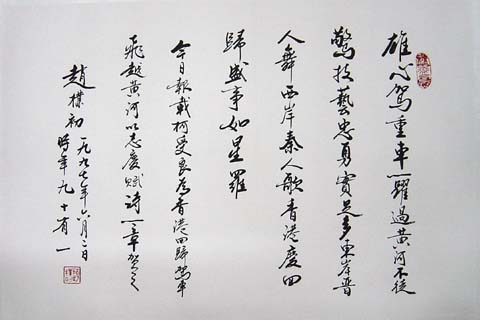 雄心駕重車一躍過黃河不徒
驚技藝忠勇實足多東岸晉
人舞西岸秦人歌香港慶回
歸盛事如星羅
今日報載柯受良為香港回歸駕車
飛越黃河以志慶賦詩一章賀之
趙樸初 一九九七年六月二日
時年九十有一